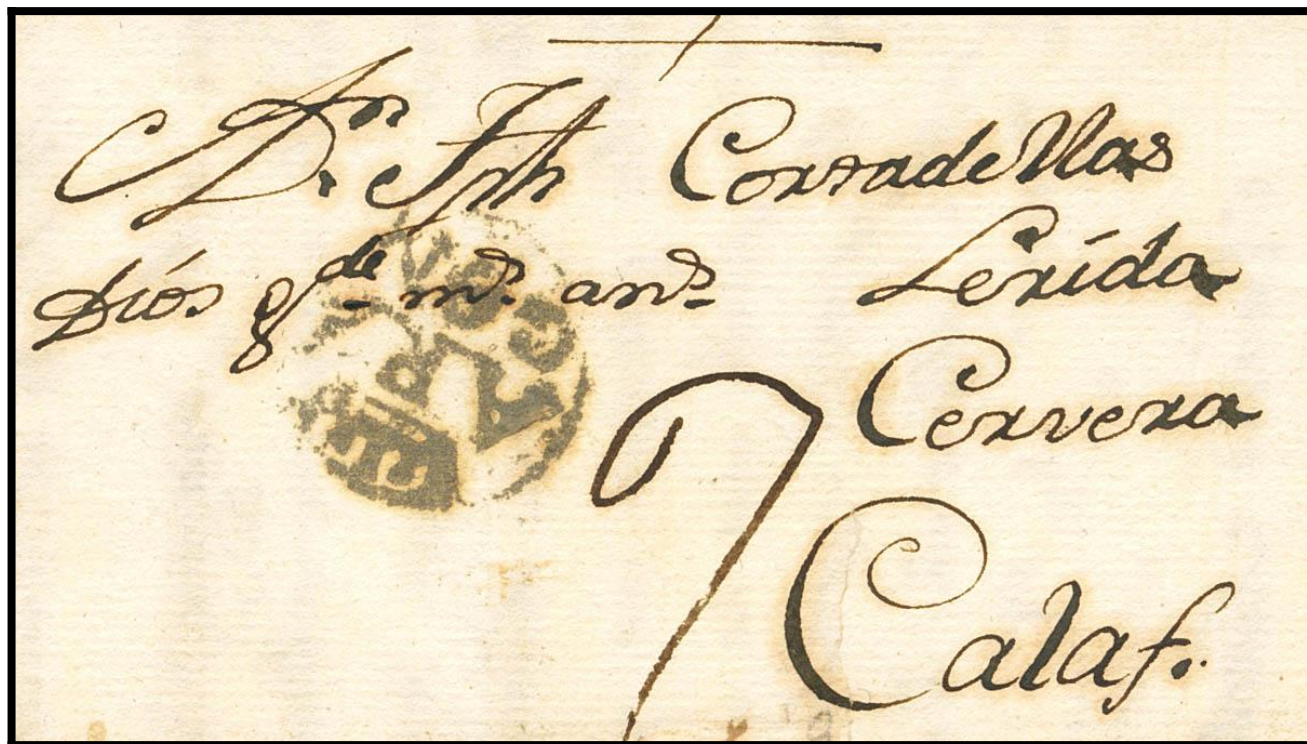 Dn. Jph Cortadellas
Dios gde ms. ans. Lerida
Cervera
7
Calaf.